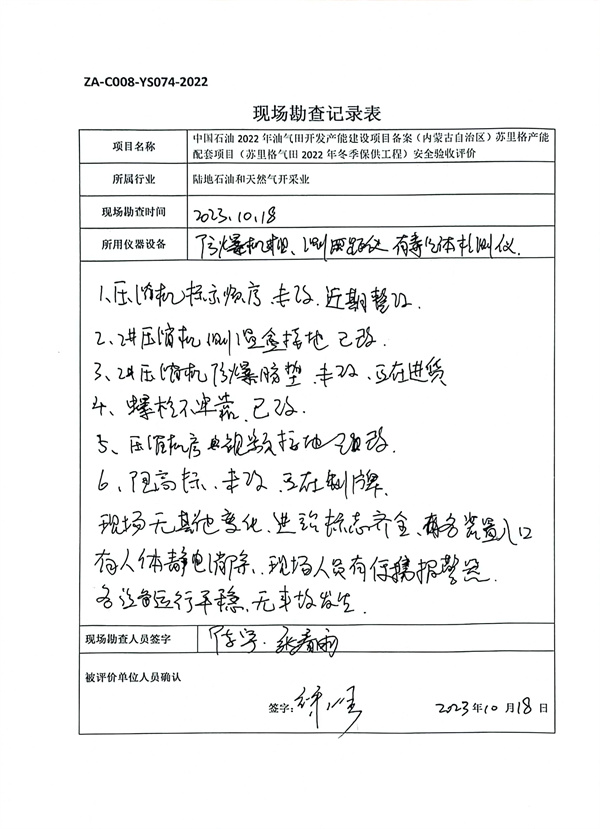 ZA-C008-YS074-2022
现场勘查记录表
项目名称
中国石油 2022 年油气田开发产能建设项目备案（内蒙古自治区）苏里格产能
配套项目（苏里格气田 2022 年冬季保供工程）安全验收评价
所属行业
陆地石油和天然气开采业
现场勘查时间
2023.10.18
所用仪器设备
防爆机相、测距仪 有毒气体检测仪.
1、压缩机标示顺序 未改. 近期整改.
2、进压缩机 测温盒接地 已改.
3、进压缩机防爆胶垫 未改. 正在进货
4、螺栓不牢靠. 已改.
5、压缩机房 视频接地 已改.
6、限高标、未改 正在制牌.
现场无其他变化. 进站标志齐全. 各装置入口
有人体静电消除. 现场人员有便携报警器.
各设备运行平稳. 无事故发生.
现场勘查人员签字
被评价单位人员确认
签字：
2023年10月18日